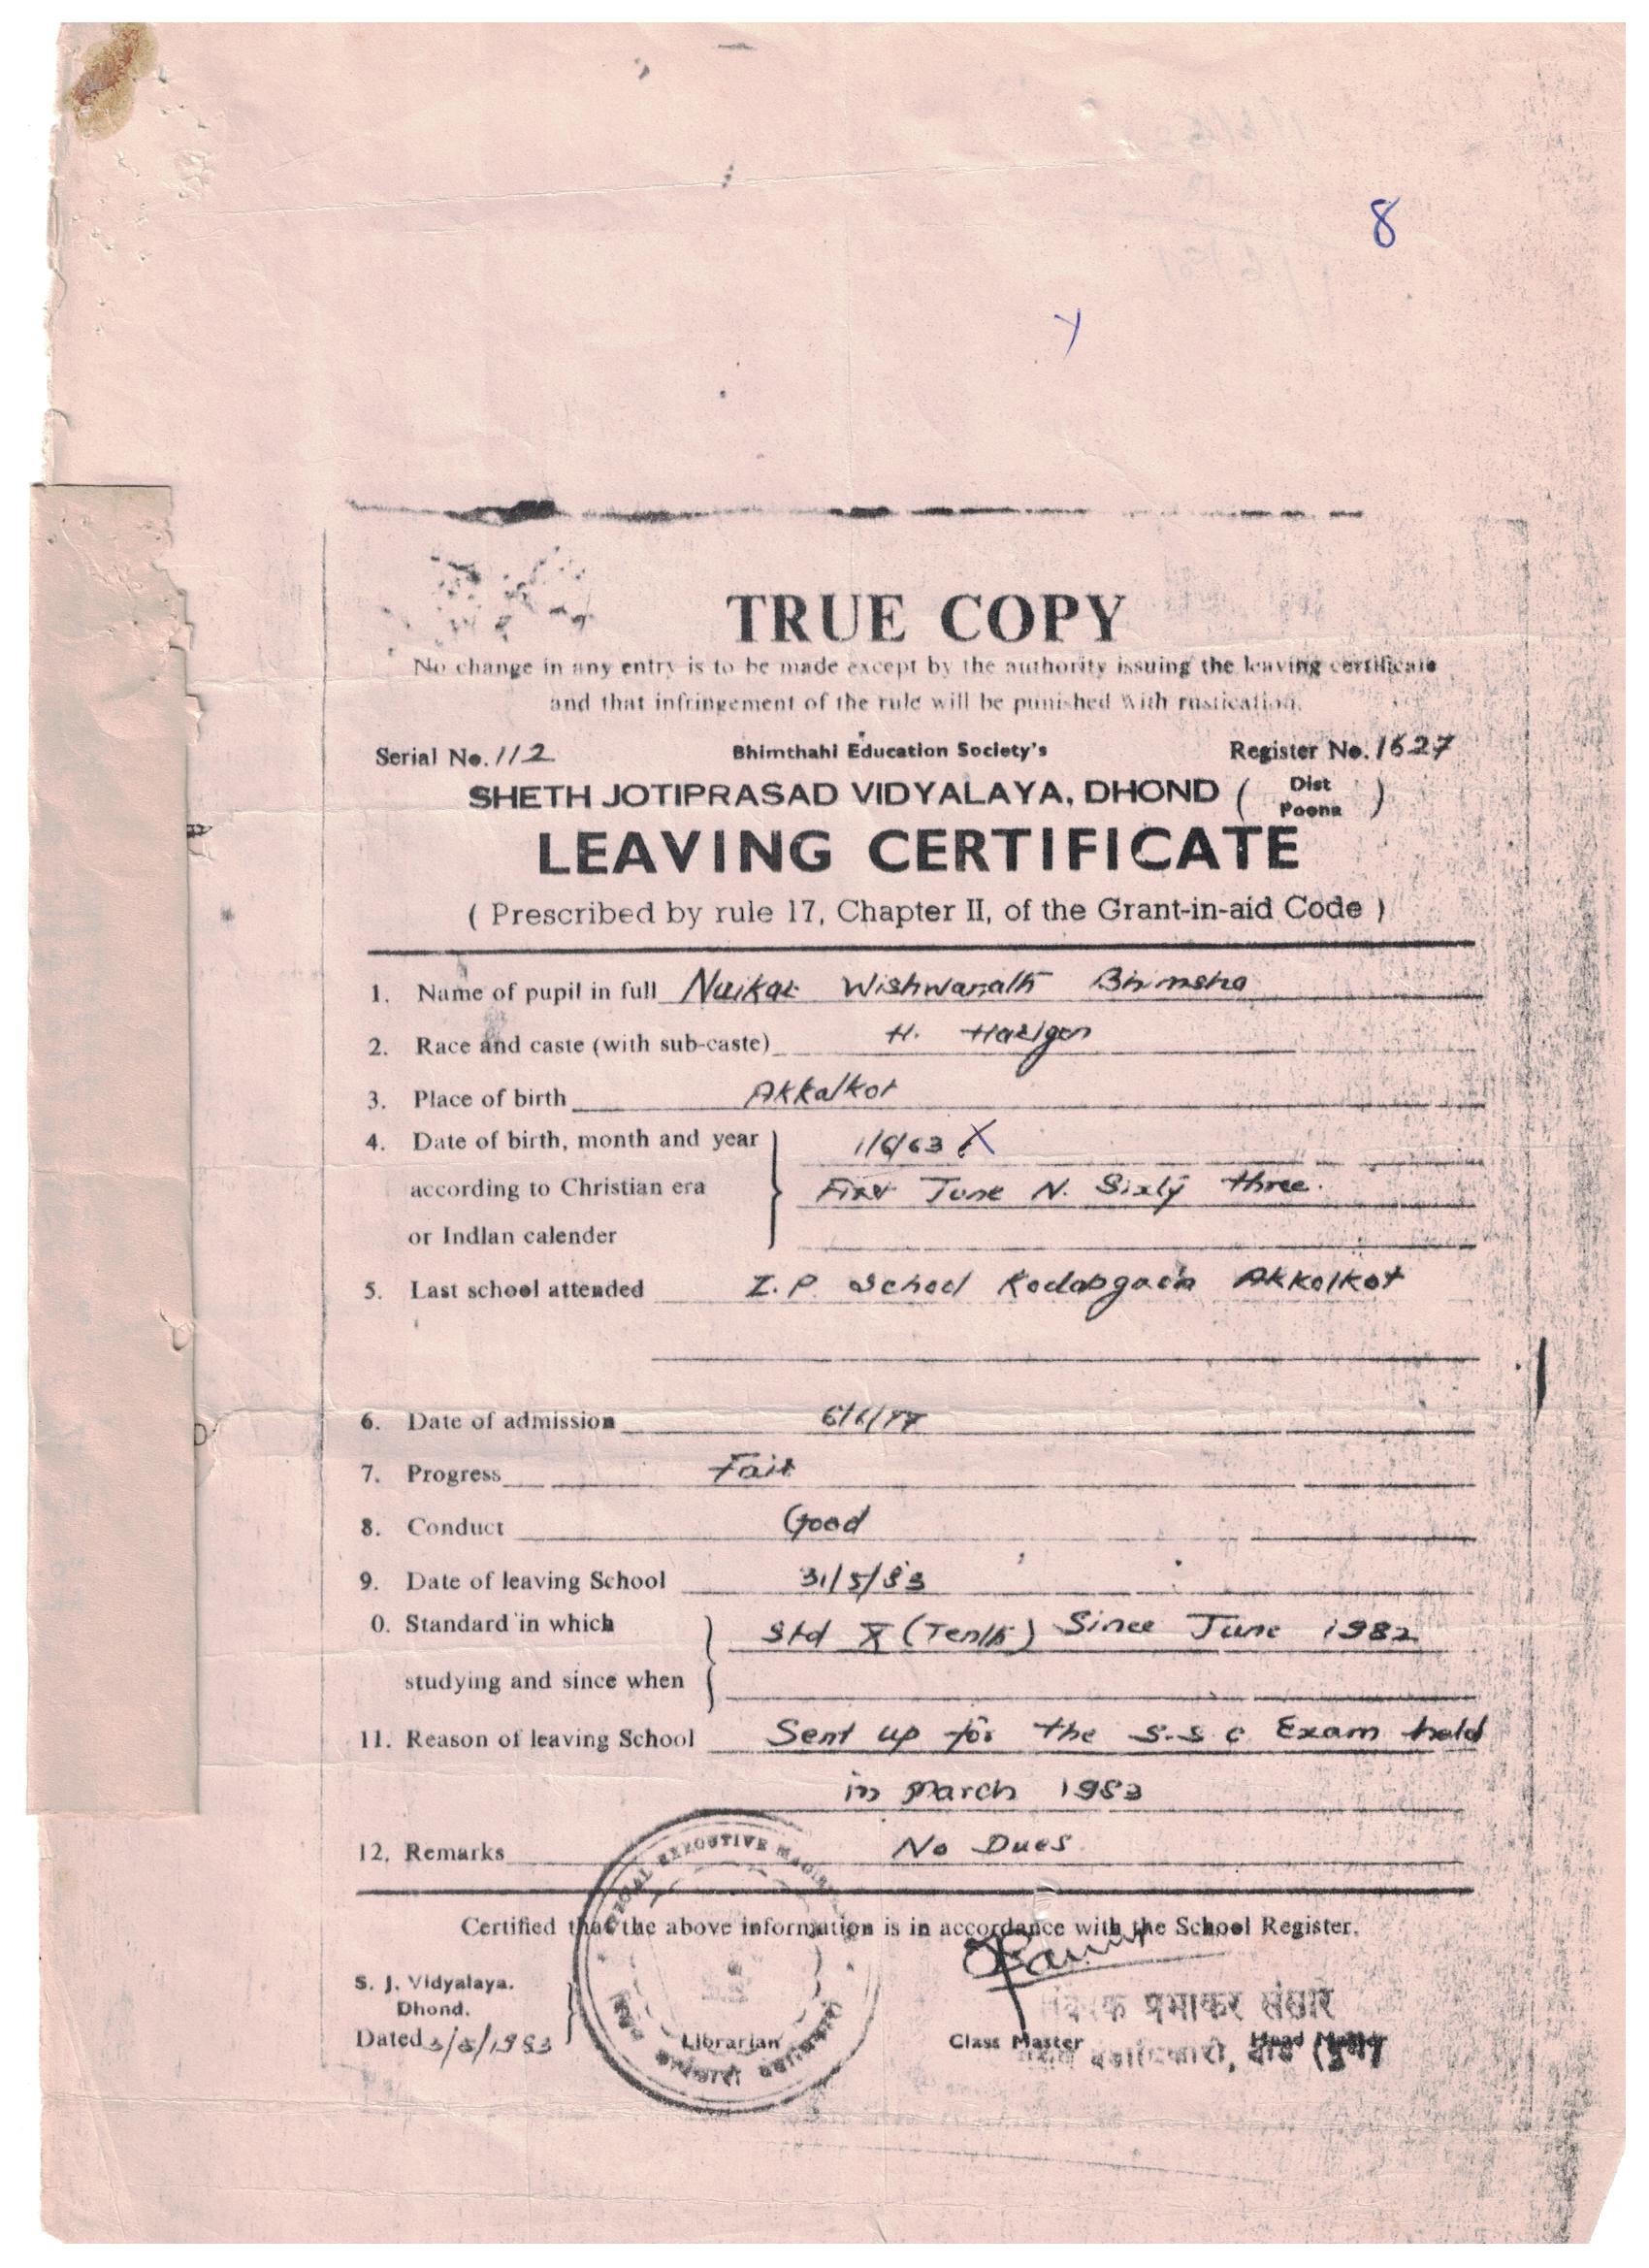 8
TRUE COPY
No change in any entry is to be made except by the authority issuing the leaving certificate
and that infringement of the rule will be punished with rustication.
Serial No. 112 Bhimthahi Education Society's Register No. 1627
SHETH JOTIPRASAD VIDYALAYA, DHOND ( Dist Poona )
LEAVING CERTIFICATE
( Prescribed by rule 17, Chapter II, of the Grant-in-aid Code )
1. Name of pupil in full Naikar Wishwanath Bhimsha
2. Race and caste (with sub-caste) H. Harijan
3. Place of birth Akkalkot
4. Date of birth, month and year 1/6/63
according to Christian era First June N. Sixty three.
or Indian calender
5. Last school attended Z.P. School Akkolkot
6. Date of admission
7. Progress Fair
8. Conduct Good
9. Date of leaving School 31/5/83
0. Standard in which Std X (Tenth) Since June 1982
studying and since when
11. Reason of leaving School Sent up for the S.S.C Exam held
in March 1983
12. Remarks No Dues
Certified that the above information is in accordance with the School Register.
S. J. Vidyalaya.
Dhond.
Dated /1983 Librarian Class Master Head Master
प्रभाकर